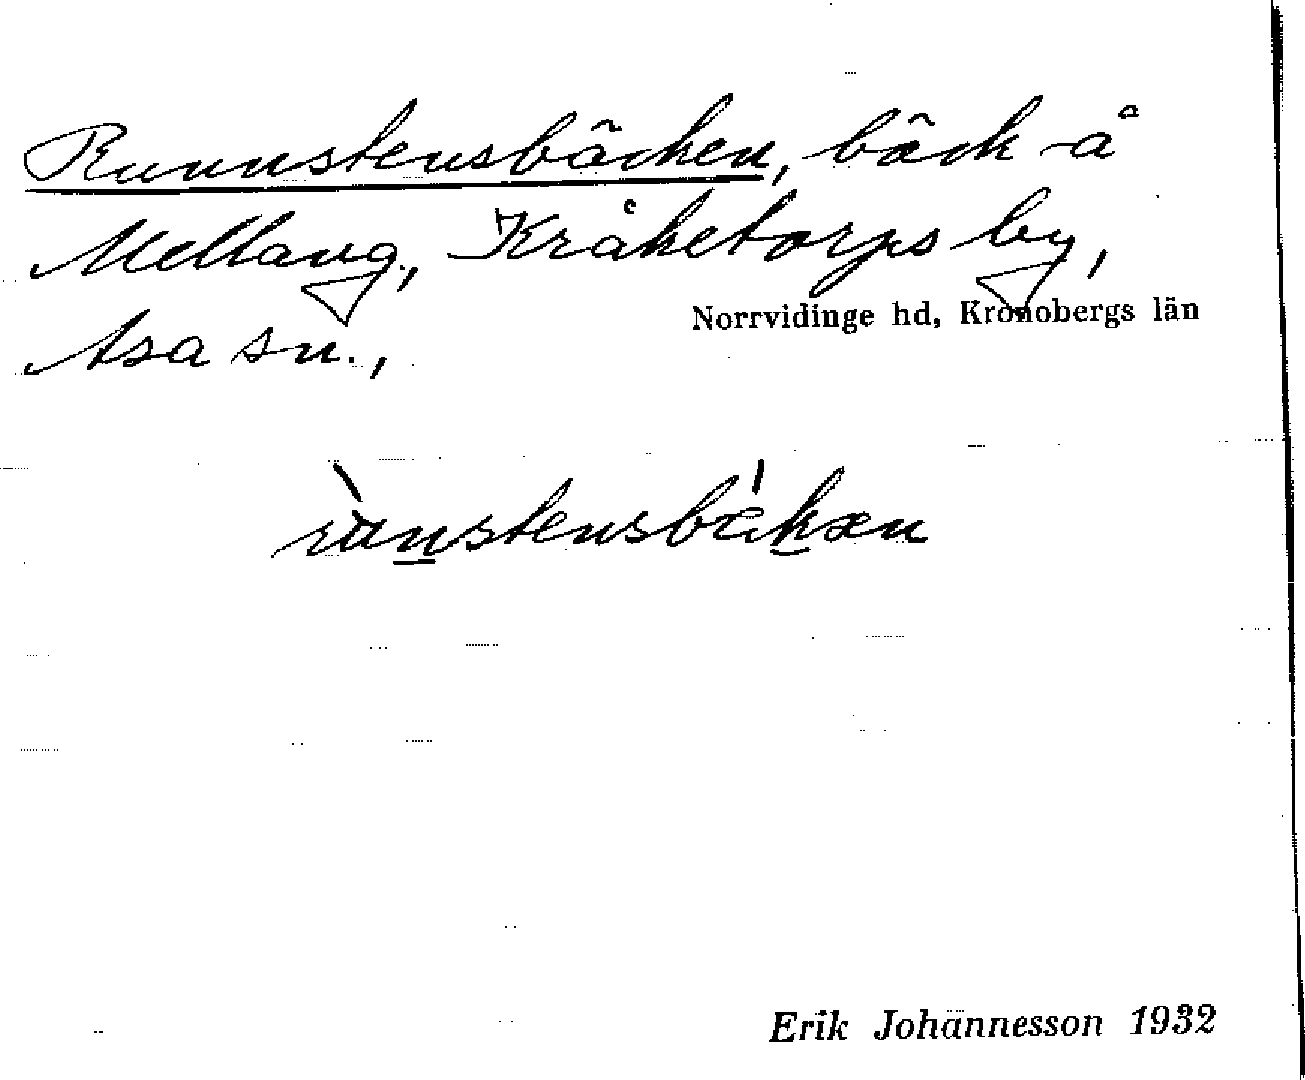 Runnstensbäcken, bäck å
Mellang., Kråketorps by,
Norrvidinge hd, Kronobergs län
Asa sn.,
Erik Johannesson 1932